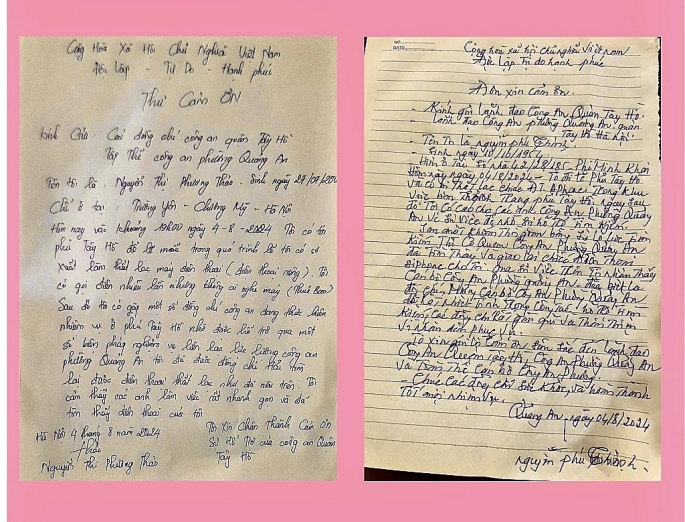 Cộng Hòa Xã Hội Chủ Nghĩa Việt Nam
Độc Lập - Tự Do - Hạnh phúc
Thư Cảm Ơn
Kính Gửi: Các đồng chí công an quận Tây Hồ
Tập Thể công an phường Quảng An
Tên tôi là: Nguyễn Thị Phương Thảo. Sinh ngày 27/07/
Chỗ ở tại: Trường Yên - Chương Mỹ - Hà Nội
Hôm nay vào khoảng 10h00 ngày 4-8-2024 Tôi có tới
phủ Tây Hồ để lễ trong quá trình lễ tôi có sơ
xuất làm thất lạc máy điện thoại (điện thoại nóng). Tôi
có gọi điện nhiều lần nhưng không ai nghe máy (Thuê Bao)
Sau đó tôi có gặp một số đồng chí công an đang thực hiện
nhiệm vụ ở phủ Tây Hồ nhờ được hỗ trợ qua một
số biện pháp nghiệp vụ liên lạc lực lượng công an
phường Quảng An tôi đã được đồng chí tìm
lại được điện thoại thất lạc như đã nêu trên. Tôi
cảm thấy các anh làm việc rất nhanh gọn và đã
tìm thấy điện thoại của tôi
Tôi Xin Chân Thành Cảm Ơn
Sự Hỗ Trợ của công an Quận
Tây Hồ
Hà Nội 4 tháng 8 năm 2024
Thảo
Nguyễn Thị Phương Thảo
NO.
DATE
Cộng hòa xã hội chủ nghĩa Việt nam
Độc Lập Tự do hạnh phúc
Đơn xin cảm ơn.
- Kính gửi Lãnh đạo Công An Quận Tây Hồ.
- Lãnh đạo Công An phường Quảng An. quận
Tây Hồ Hà Nội
Tên Tôi là nguyễn phú
Sinh ngày 10/10/1954
Hiện ở Tại Số nhà 42/28/185 - Phố Minh Khai
Hôm nay ngày 04/8/2024 - Tôi đi lễ Phủ Tây Hồ
và có bị Thất Lạc chiếc ĐT Aiphone Trong Khu
Vực Phủ Tây Hồ ngay sau
đó Tôi Có báo Cho Các anh Công An Phường Quảng
An Về Sự Việc để nhờ Sự hỗ Trợ Tìm Kiếm.
Sau một Khoảng Thời gian bằng Sự nỗ Lực Tìm
Kiếm Thì Cơ Quan Công An Phường Quảng An
đã Tìm Thấy Và giao Lại chiếc điện Thoại
Aiphone cho Tôi. Qua Sự Việc Trên Tôi Nhận Thấy
Cán bộ CS Công An Phường Quảng An. đặc biệt Là
đ/c Cán bộ Công An Phường Quảng An
đã Rất Nhiệt Tình Trong Công Tác, hỗ Trợ Tìm
Kiếm, Các đồng chí Rất gần gũi và Thân Thiện
Vì Nhân dân phục Vụ.
Tôi xin gửi Lời Cảm ơn Sâu Sắc đến Lãnh đạo
Công An Quận Tây Hồ Công An Phường Quảng An
Và Toàn Thể Cán bộ Công An Phường.
- Chúc Các đồng chí Sức Khỏe, Và hoàn Thành
Tốt mọi nhiệm vụ.
Quảng An, ngày 04/8/2024
nguyễn phú